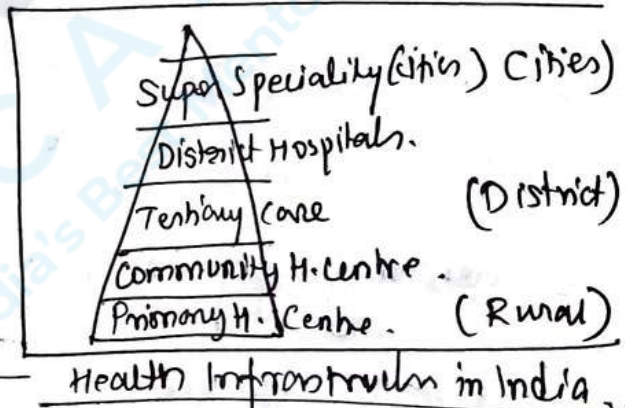 Super Speciality (cities) Cities)
District Hospitals.
Tertiary Care (District)
Community H. Centre.
Primary H. Centre. (Rural)
Health Infrastructure in India.